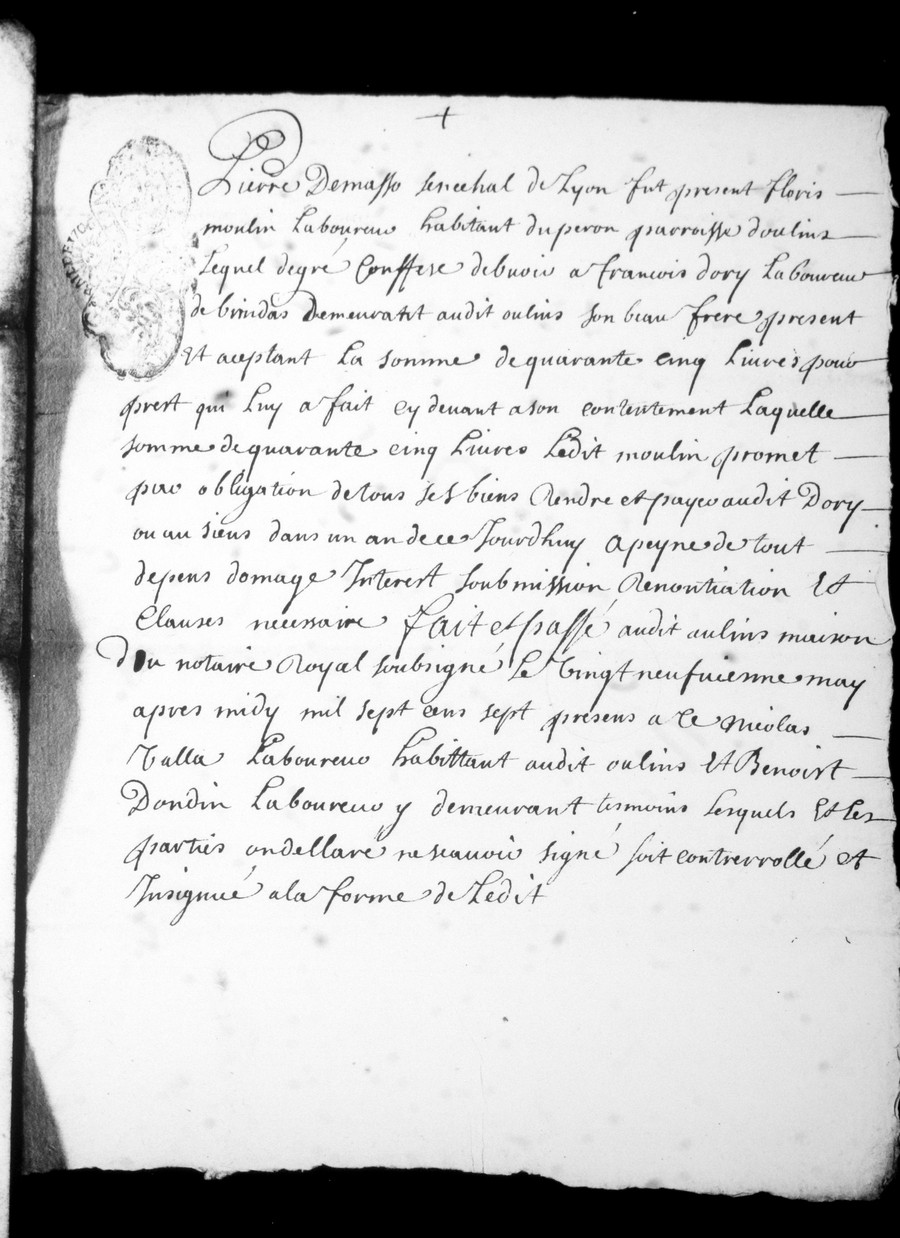 +
Pierre Demasso senechal de Lyon fut present floris
moulin Laboureur habitant duperon parroisse doulins
Lequel degré Conffese debuoir a francois dory Laboureur
de brindas Demeurant audit oulins son beau frere present
Et aceptant La somme de quarante cinq Livres pour
prest qui Luy a fait cy devant a son contentement Laquelle
somme de quarante cinq Livres Ledit moulin promet
par obligation de tous ses biens Rendre et payer audit Dory
ou au siens dans un an de ce Jourdhuy a peyne de tout
depens domage Interest soubmission Renontiation Et
Clauses necessaire fait et passé audit oulins maison
Du notaire Royal soubsigné Le Vingt neufuieme may
apres midy mil sept cens sept presens a Ce Nicolas
Valla Laboureur habittant audit oulins Et Benoist
Dondin Laboureur y demeurant tesmoins Lesquels Et Les
parties ondellaré ne scauoir signé soit contrerrollé et
Insignué a la forme de Ledit